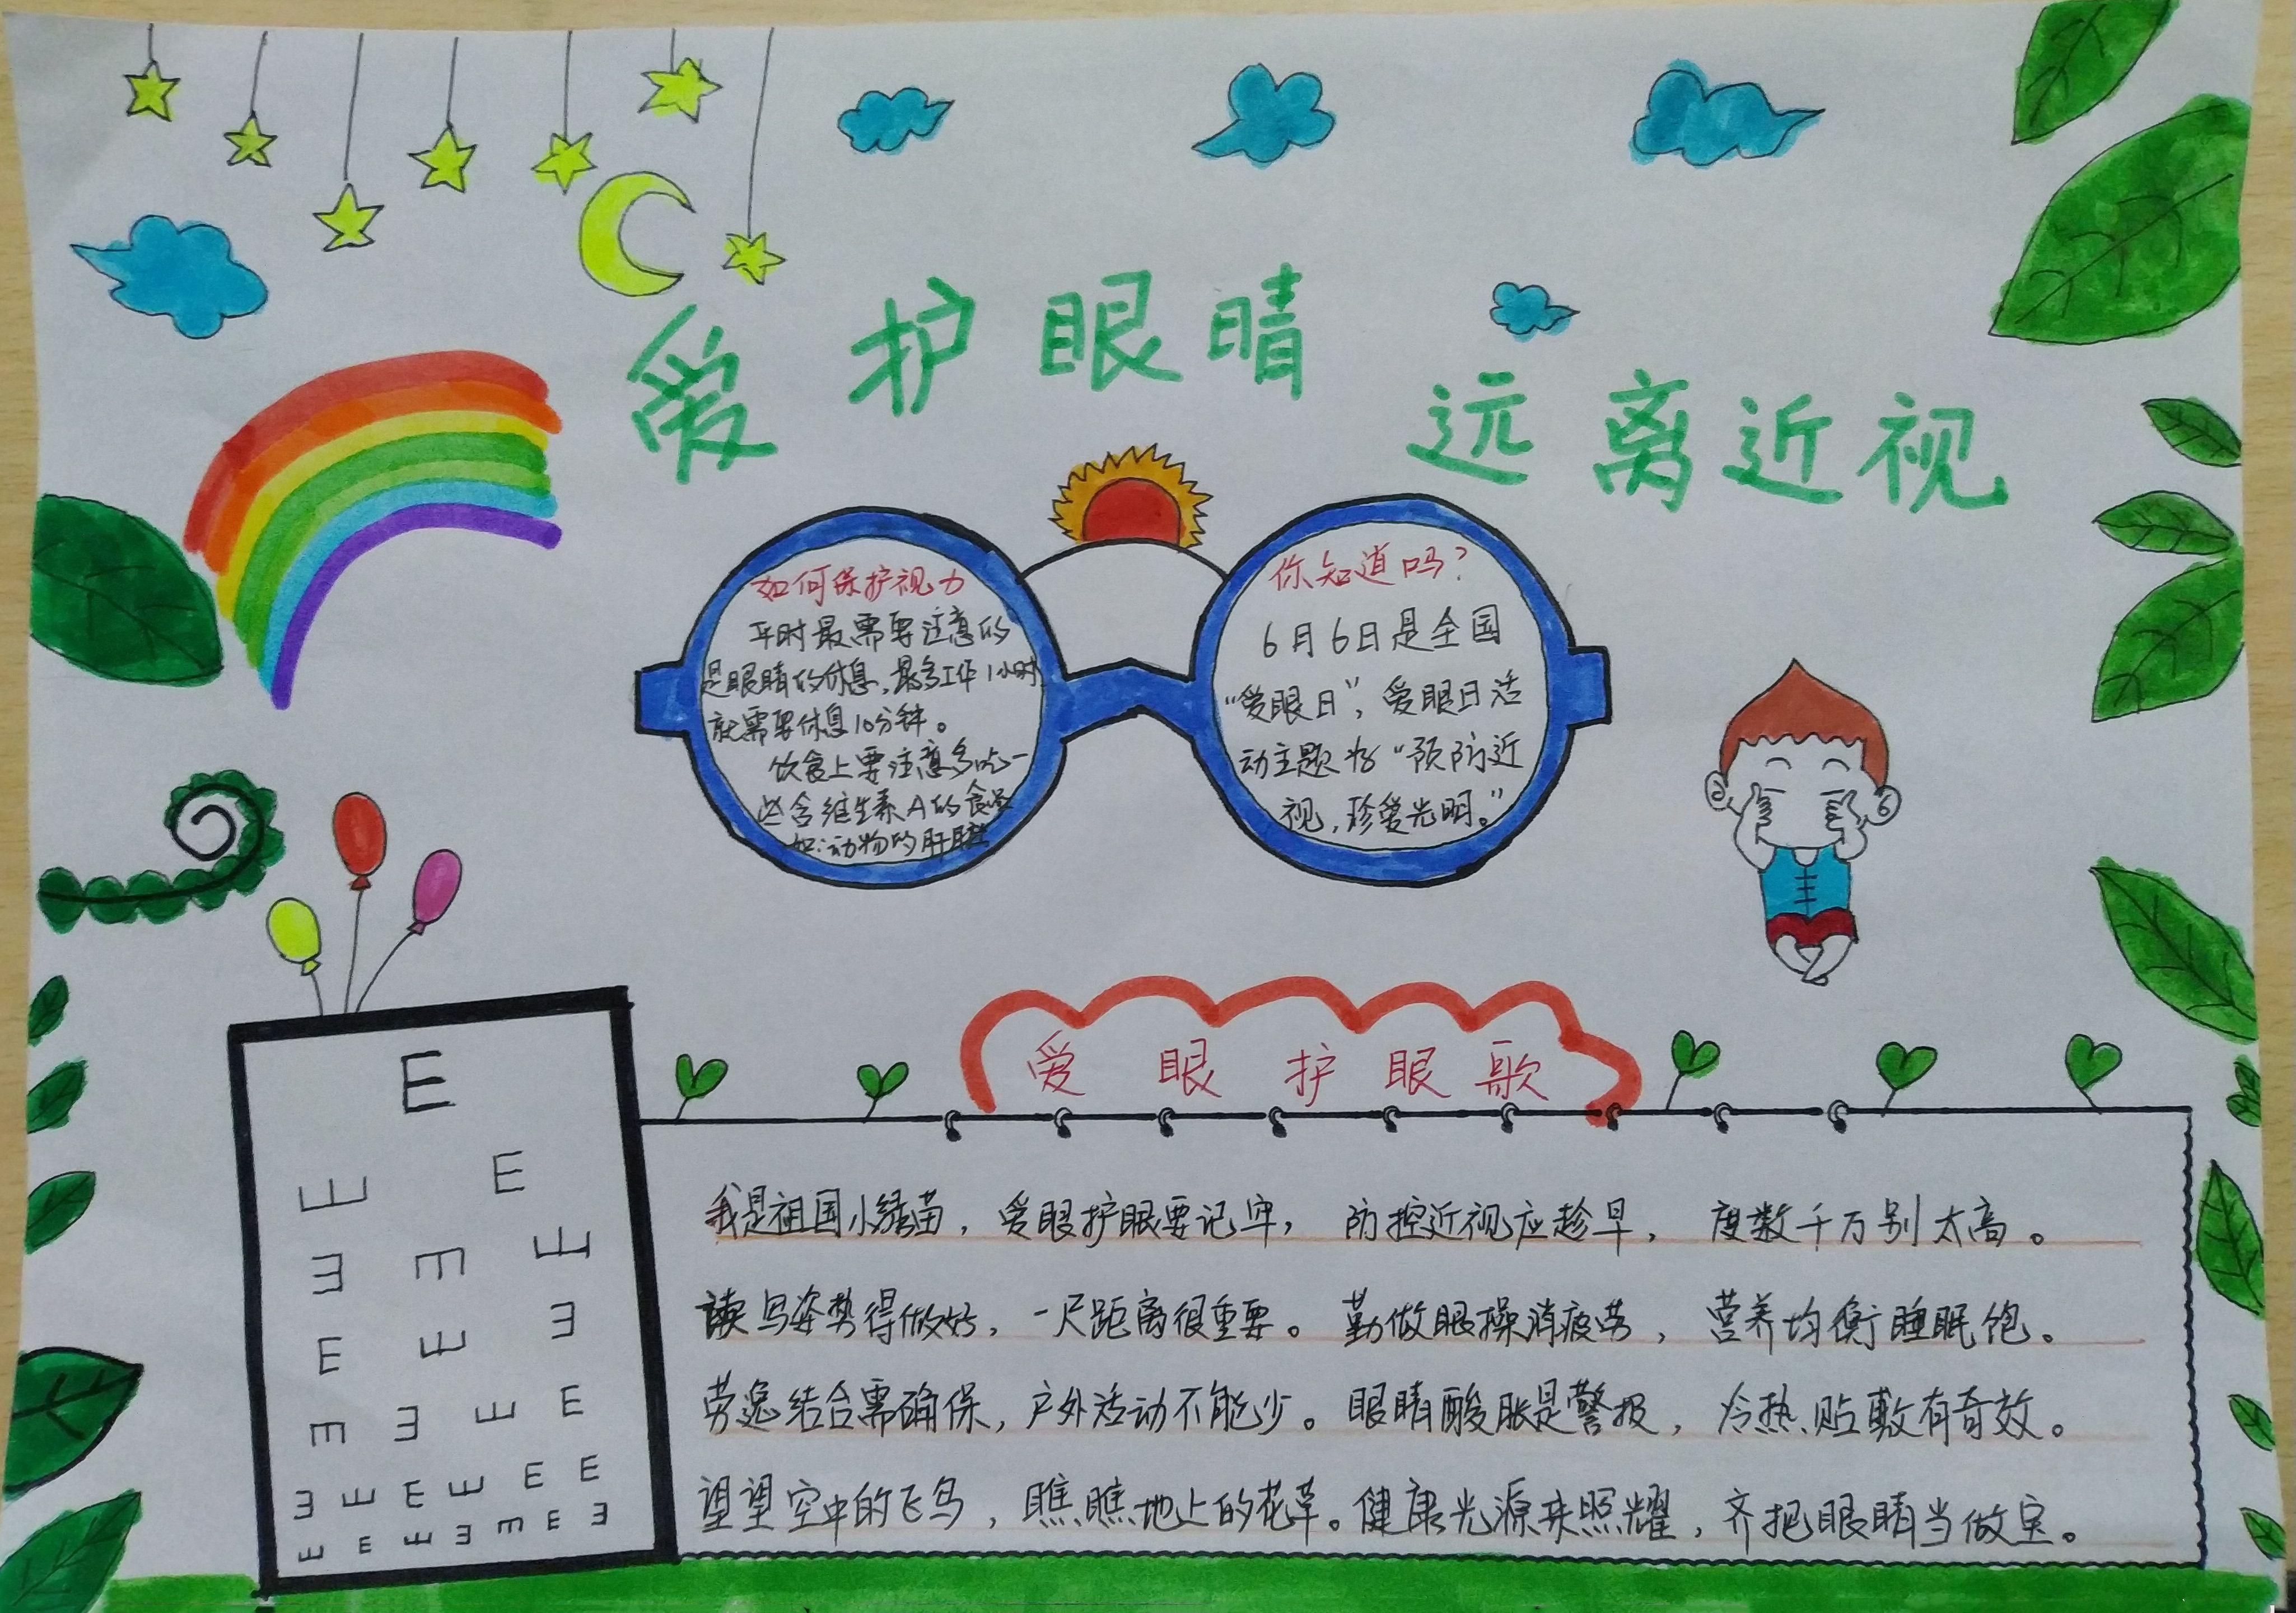 爱护眼睛
远离近视
如何保护视力
平时最需要注意的
是眼睛的休息,最多工作1小时
就需要休息10分钟。
饮食上要注意多吃一
些含维生素A的食
如:动物的肝脏
你知道吗?
6月6日是全国
“爱眼日”,爱眼日活
动主题为“预防近
视,珍爱光明。”
爱眼护眼歌
E
E E
E E E
E E E
E E E E
E E E E E E
E E E E E E E
我是祖国小绿苗,爱眼护眼要记牢,防控近视应趁早,度数千万别太高。
读写姿势得做好,一尺距离很重要。勤做眼操消疲劳,营养均衡睡眠饱。
劳逸结合需确保,户外活动不能少。眼睛酸胀是警报,冷热贴敷有奇效。
望望空中的飞鸟,瞧瞧地上的花草。健康光源来照耀,齐把眼睛当做宝。